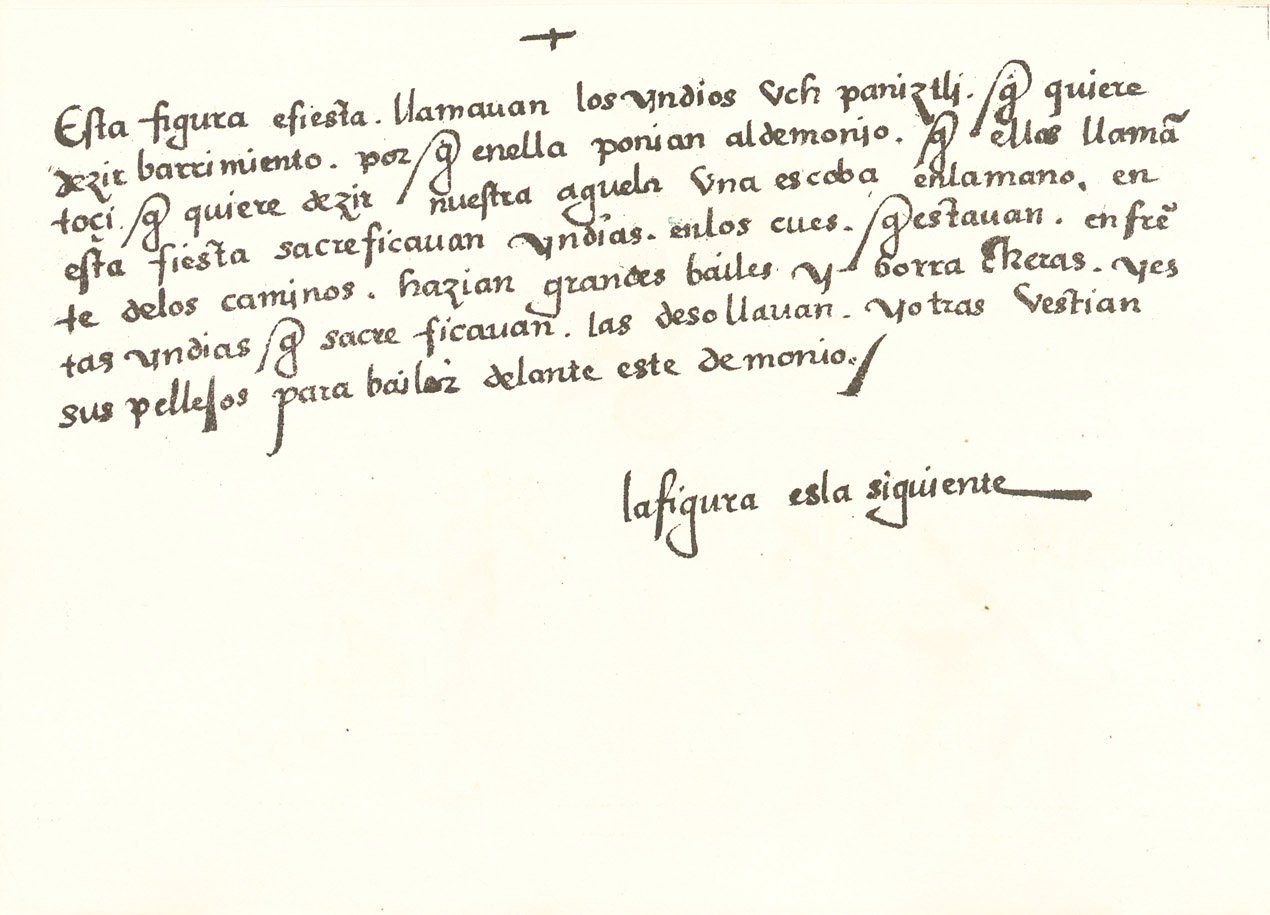 +
Esta figura efiesta. llamauan los yndios Vch paniztlj. / q̃ quiere
dezir barrimiento. por / q̃ enella ponian aldemonio. q̃ ellos llamã
toçi. / q̃ quiere dezir / nuestra aguela Vna escoba enlamano. en
esta fiesta sacreficauan yndias. enlos cues. / q̃ estauan. en frẽ
te delos caminos. hazian grandes bailes y borra cheras. yes
tas yndias / q̃ sacre ficauan. las desollauan. yotras Vestian
sus pellejos para bailar delante este demonio. /
lafigura esla siguiente